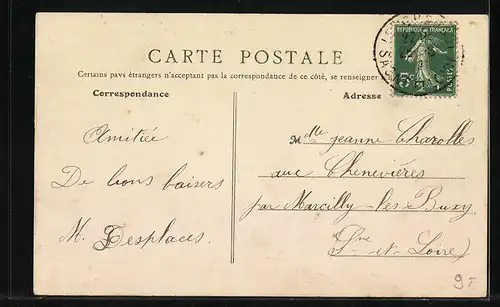 CARTE POSTALE
Certains pays étrangers n'acceptant pas la correspondance de ce côté, se renseigner
Correspondance
Adresse
RÉPUBLIQUE FRANÇAISE
POSTES
5c
Amitiée
De bons baisers
M. Desplaces.
Mlle Jeanne Charolles
aux Chenevières
par Marcilly-les-Buxy
(Sne-et-Loire)